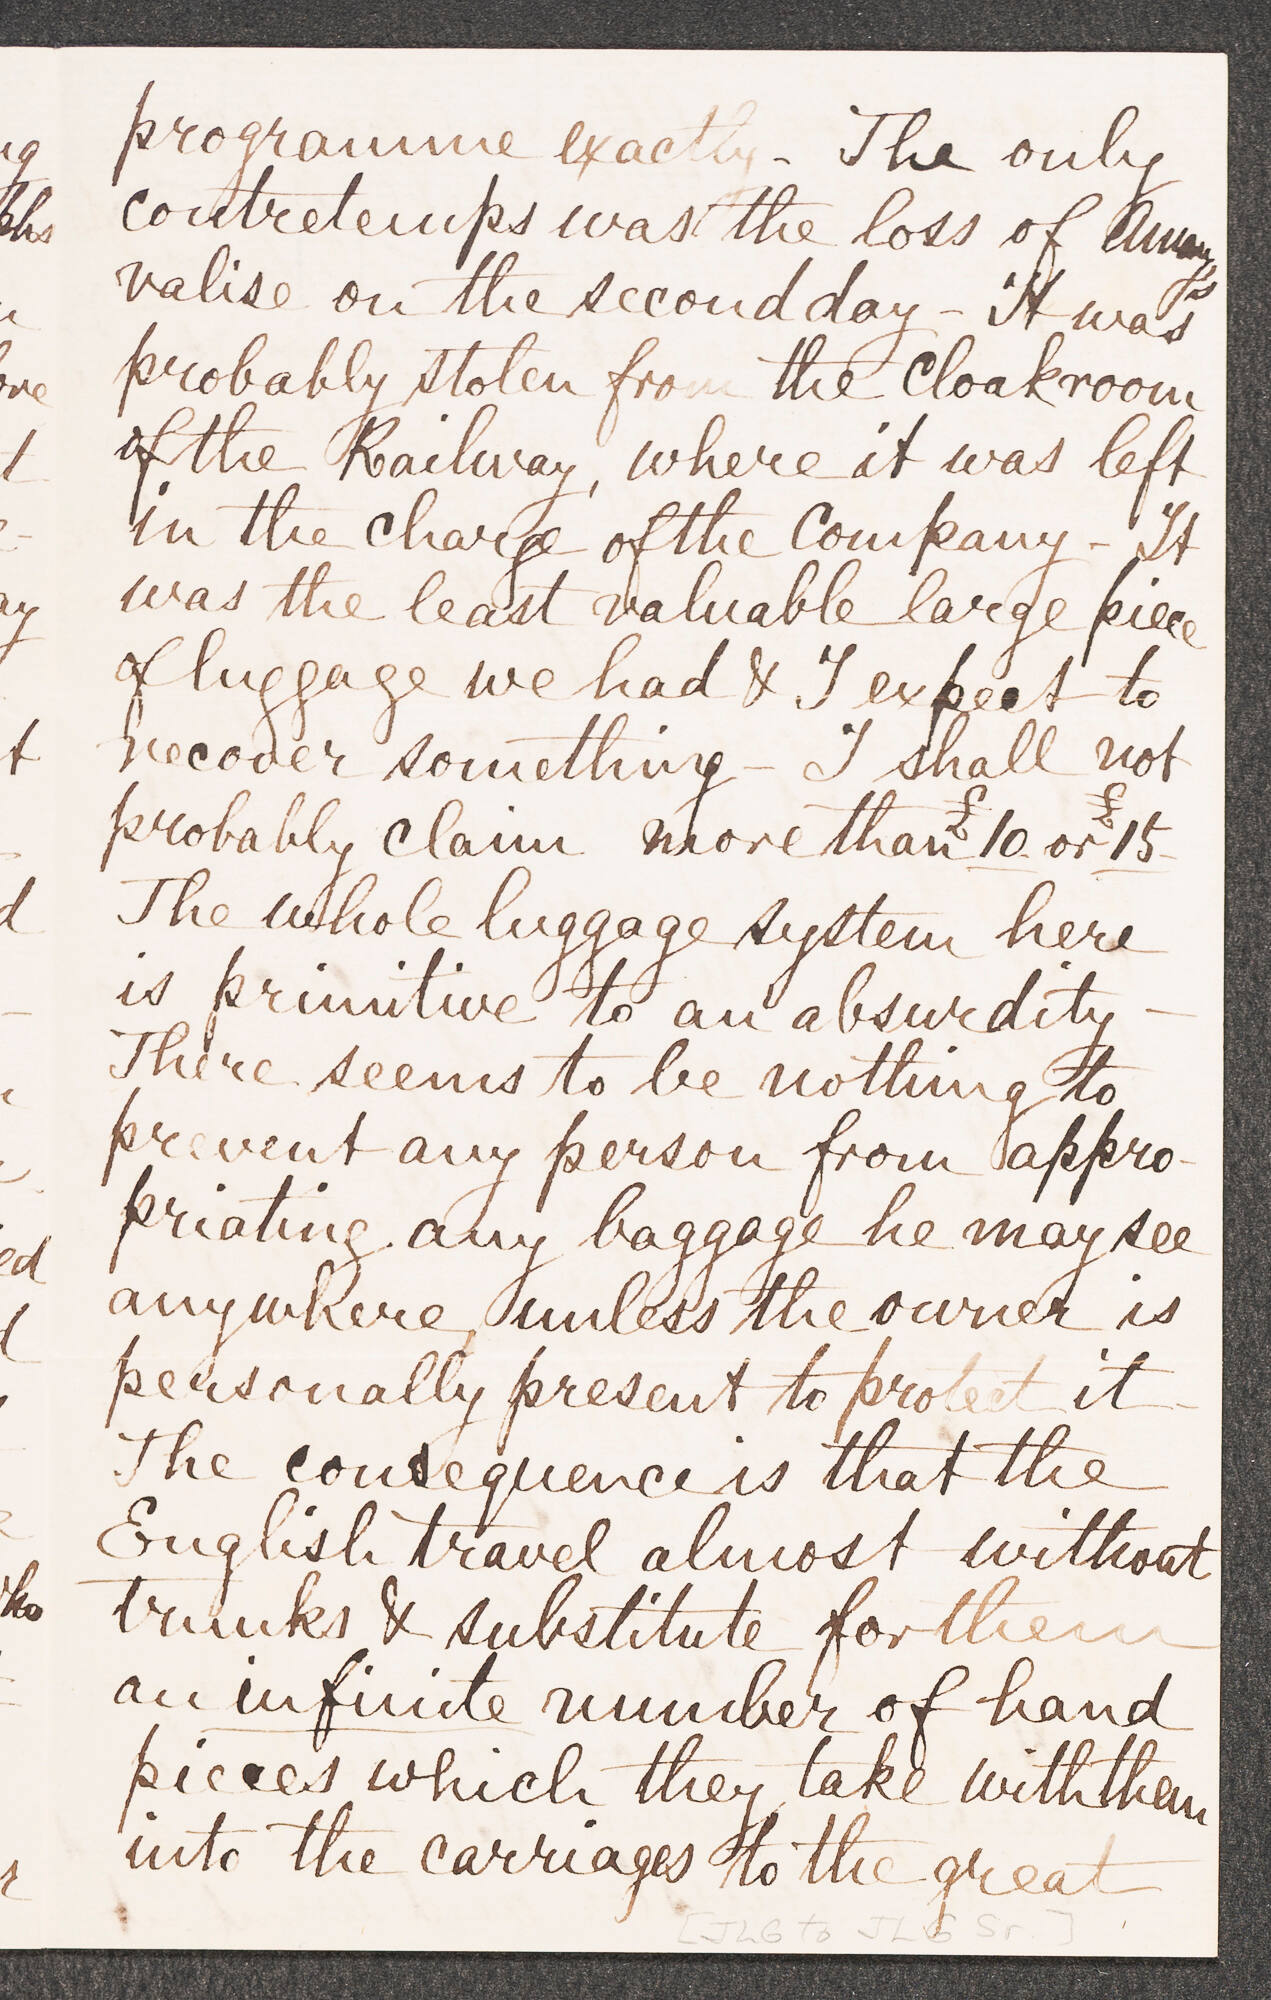 programme exactly - The only
contretemps was the loss of Amy's
valise on the second day - It was
probably stolen from the Cloakroom
of the Railway, where it was left
in the charge of the Company - It
was the least valuable large piece
of luggage we had & I expect to
recover something - I shall not
probably claim more than £10 or £15 -
The whole luggage system here
is primitive to an absurdity -
There seems to be nothing to
prevent any person from appro-
priating any baggage he may see
anywhere, unless the owner is
personally present to protect it -
The consequence is that the
English travel almost without
trunks & substitute for them
an infinite number of hand
pieces which they take with them
into the carriages to the great
[JLG to JLG Sr.]